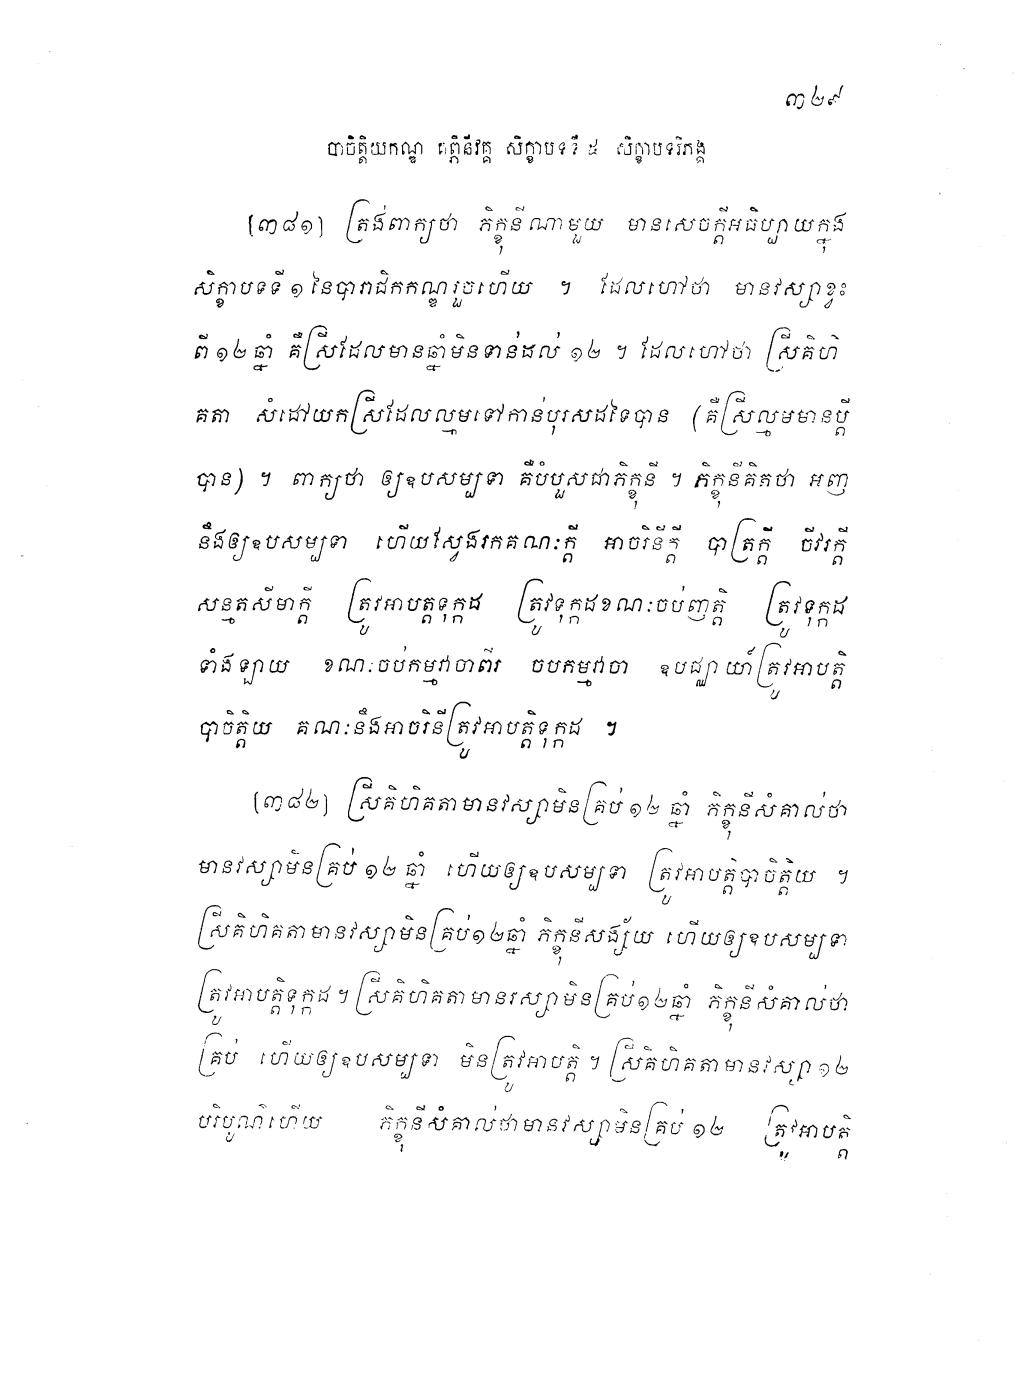 ៣២៩
បាចិត្តិយកណ្ឌ គព្ភិនីវគ្គ សិក្ខាបទទី ៥ សិក្ខាបទវិភង្គ
[៣៨១] ត្រង់ពាក្យថា ភិក្ខុនីណាមួយ មានសេចក្តីអធិប្បាយក្នុង
សិក្ខាបទទី ១ នៃបារាជិកកណ្ឌរួចហើយ ។ ដែលហៅថា មានវស្សាខ្វះ
ពី ១២ ឆ្នាំ គឺស្រីដែលមានឆ្នាំមិនទាន់ដល់ ១២ ។ ដែលហៅថា ស្រីគិហិ
គតា សំដៅយកស្រីដែលល្មមទៅកាន់បុរសដទៃបាន (គឺស្រីល្មមមានប្តី
បាន) ។ ពាក្យថា ឲ្យឧបសម្បទា គឺបំបួសជាភិក្ខុនី ។ ភិក្ខុនីគិតថា អញ
នឹងឲ្យឧបសម្បទា ហើយស្វែងរកគណៈក្តី អាចរិនីក្តី បាត្រក្តី ចីវរក្តី
សន្មតសីមាក្តី ត្រូវអាបត្តទុក្កដ ត្រូវទុក្កដខណៈចប់ញត្តិ ត្រូវទុក្កដ
ទាំងឡាយ ខណៈចប់កម្មវាចាពីរ ចបកម្មវាចា ឧបជ្ឈាយ៍ត្រូវអាបត្តិ
បាចិត្តិយ គណៈនឹងអាចរិនីត្រូវអាបត្តិទុក្កដ ។
[៣៨២] ស្រីគិហិគតាមានវស្សាមិនគ្រប់ ១២ ឆ្នាំ ភិក្ខុនីសំគាល់ថា
មានវស្សាមិនគ្រប់ ១២ ឆ្នាំ ហើយឲ្យឧបសម្បទា ត្រូវអាបត្តិបាចិត្តិយ ។
ស្រីគិហិគតាមានវស្សាមិនគ្រប់១២ឆ្នាំ ភិក្ខុនីសង្ស័យ ហើយឲ្យឧបសម្បទា
ត្រូវអាបត្តិទុក្កដ ។ ស្រីគិហិគតាមានវស្សាមិនគ្រប់១២ឆ្នាំ ភិក្ខុនីសំគាល់ថា
គ្រប់ ហើយឲ្យឧបសម្បទា មិនត្រូវអាបត្តិ ។ ស្រីគិហិគតាមានវស្សា ១២
បរិបូណ៌ហើយ ភិក្ខុនីសំគាល់ថាមានវស្សាមិនគ្រប់ ១២ ត្រូវអាបត្តិ